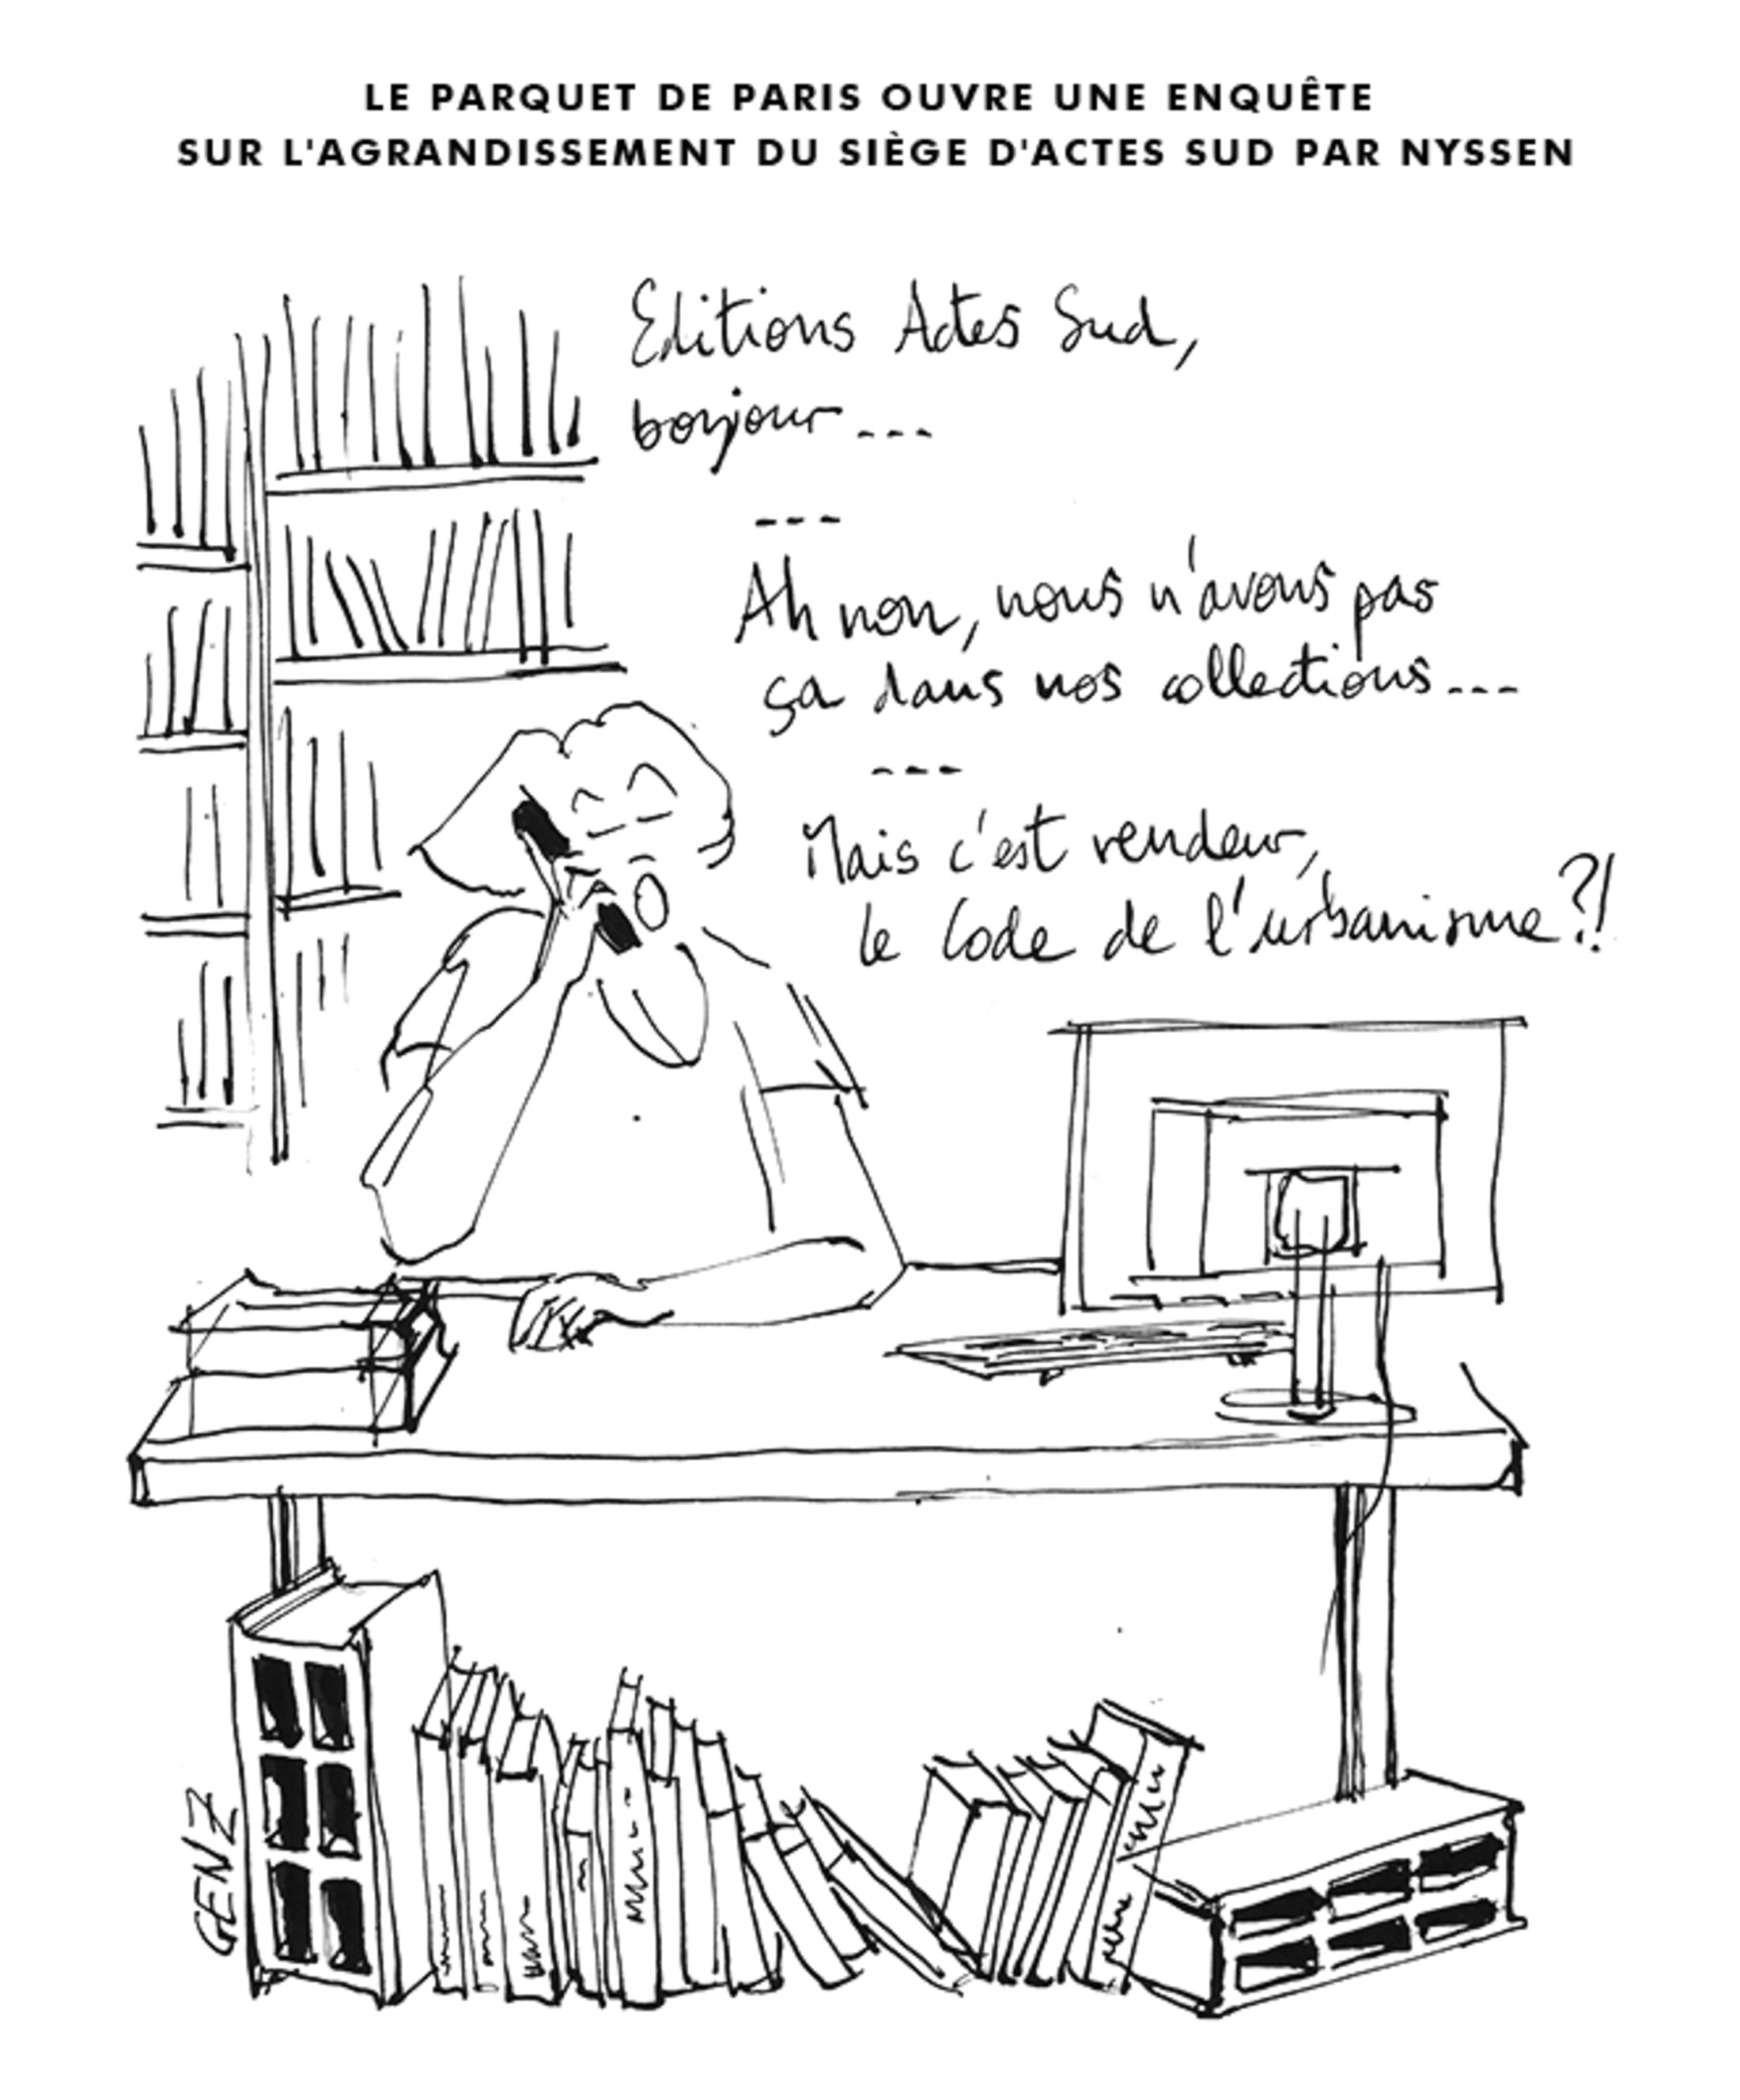 LE PARQUET DE PARIS OUVRE UNE ENQUÊTE
SUR L'AGRANDISSEMENT DU SIÈGE D'ACTES SUD PAR NYSSEN
Editions Actes Sud,
bonjour ---
---
Ah non, nous n'avons pas
ça dans nos collections ---
---
Mais c'est vendeur,
le Code de l'urbanisme ?!
GENZ